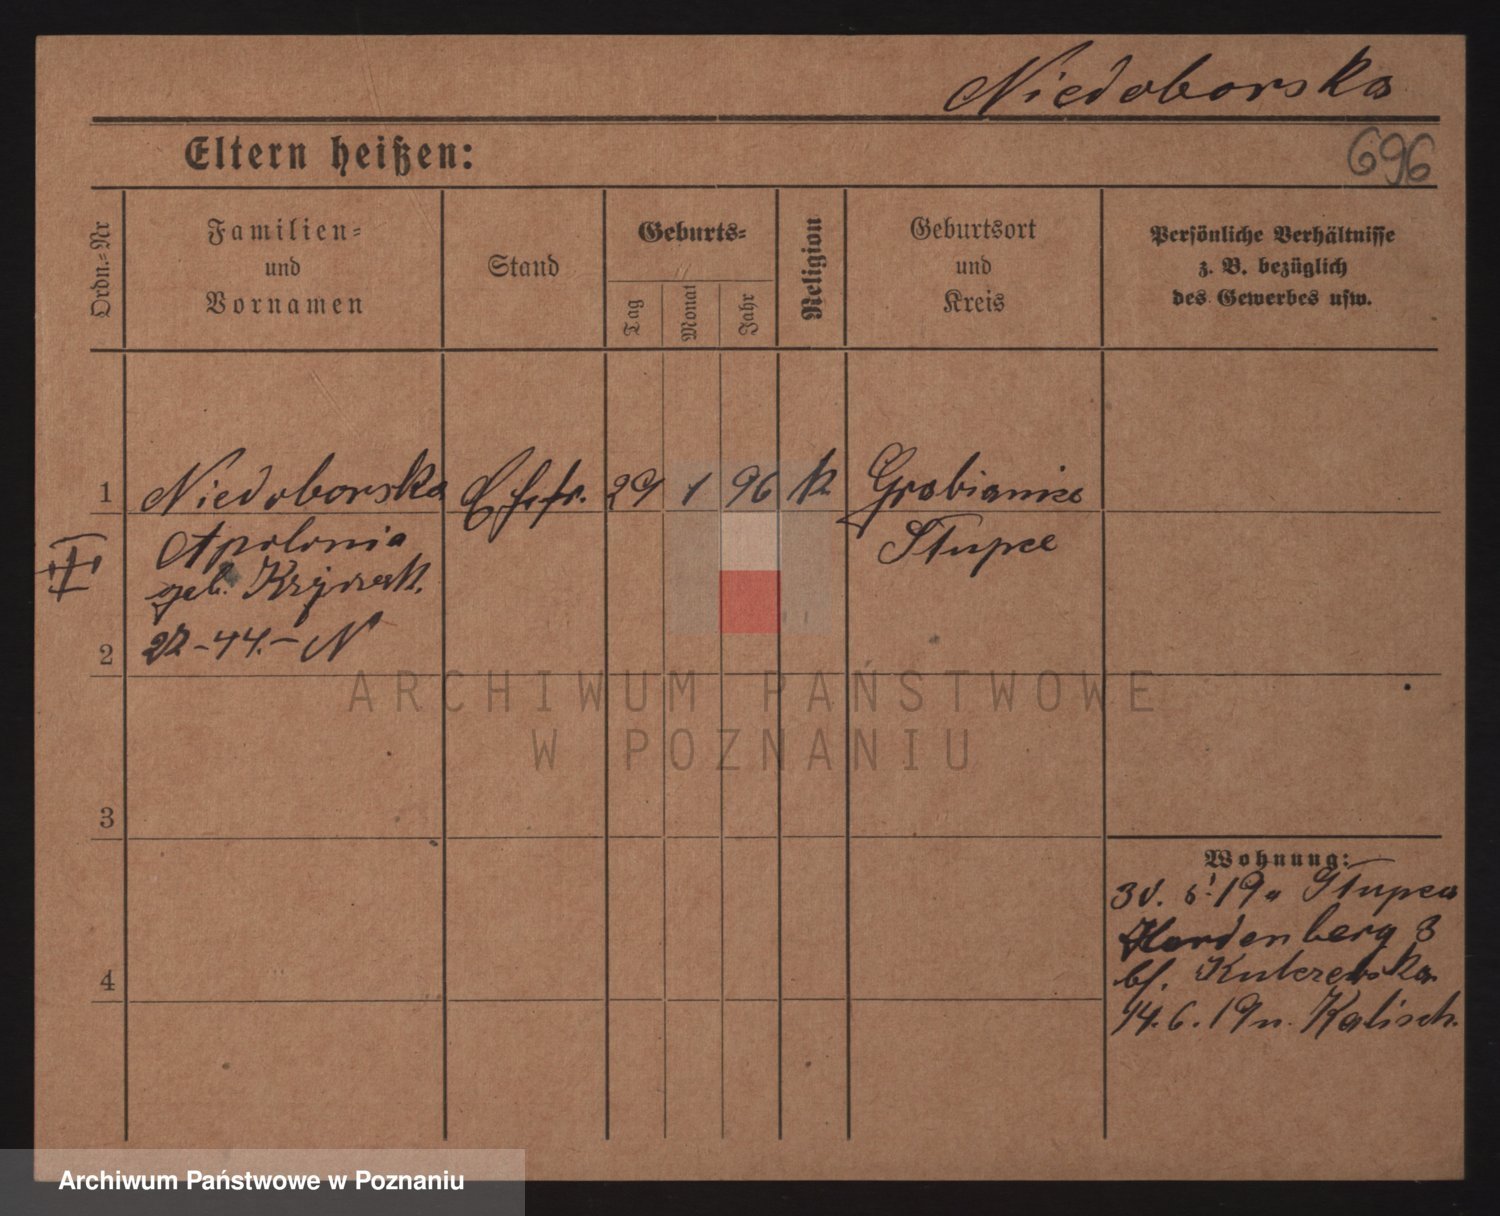 Niedoborska
Eltern heißen:
696
Ordn.=Nr
Familien=
und
Vornamen
Stand
Geburts=
Tag
Monat
Jahr
Religion
Geburtsort
und
Kreis
Persönliche Verhältnisse
z. B. bezüglich
des Gewerbes usw.
1 Niedoborska Ehefr. 29 1 96 k Grabianice
Apolonia Stupce
geb.
2 -44.- N
ARCHIWUM PAŃSTWOWE
W POZNANIU
3
Wohnung:
19 Stupca
Hardenberg 3
bf.
4
14.6.19 n. Kalisch.
Archiwum Państwowe w Poznaniu